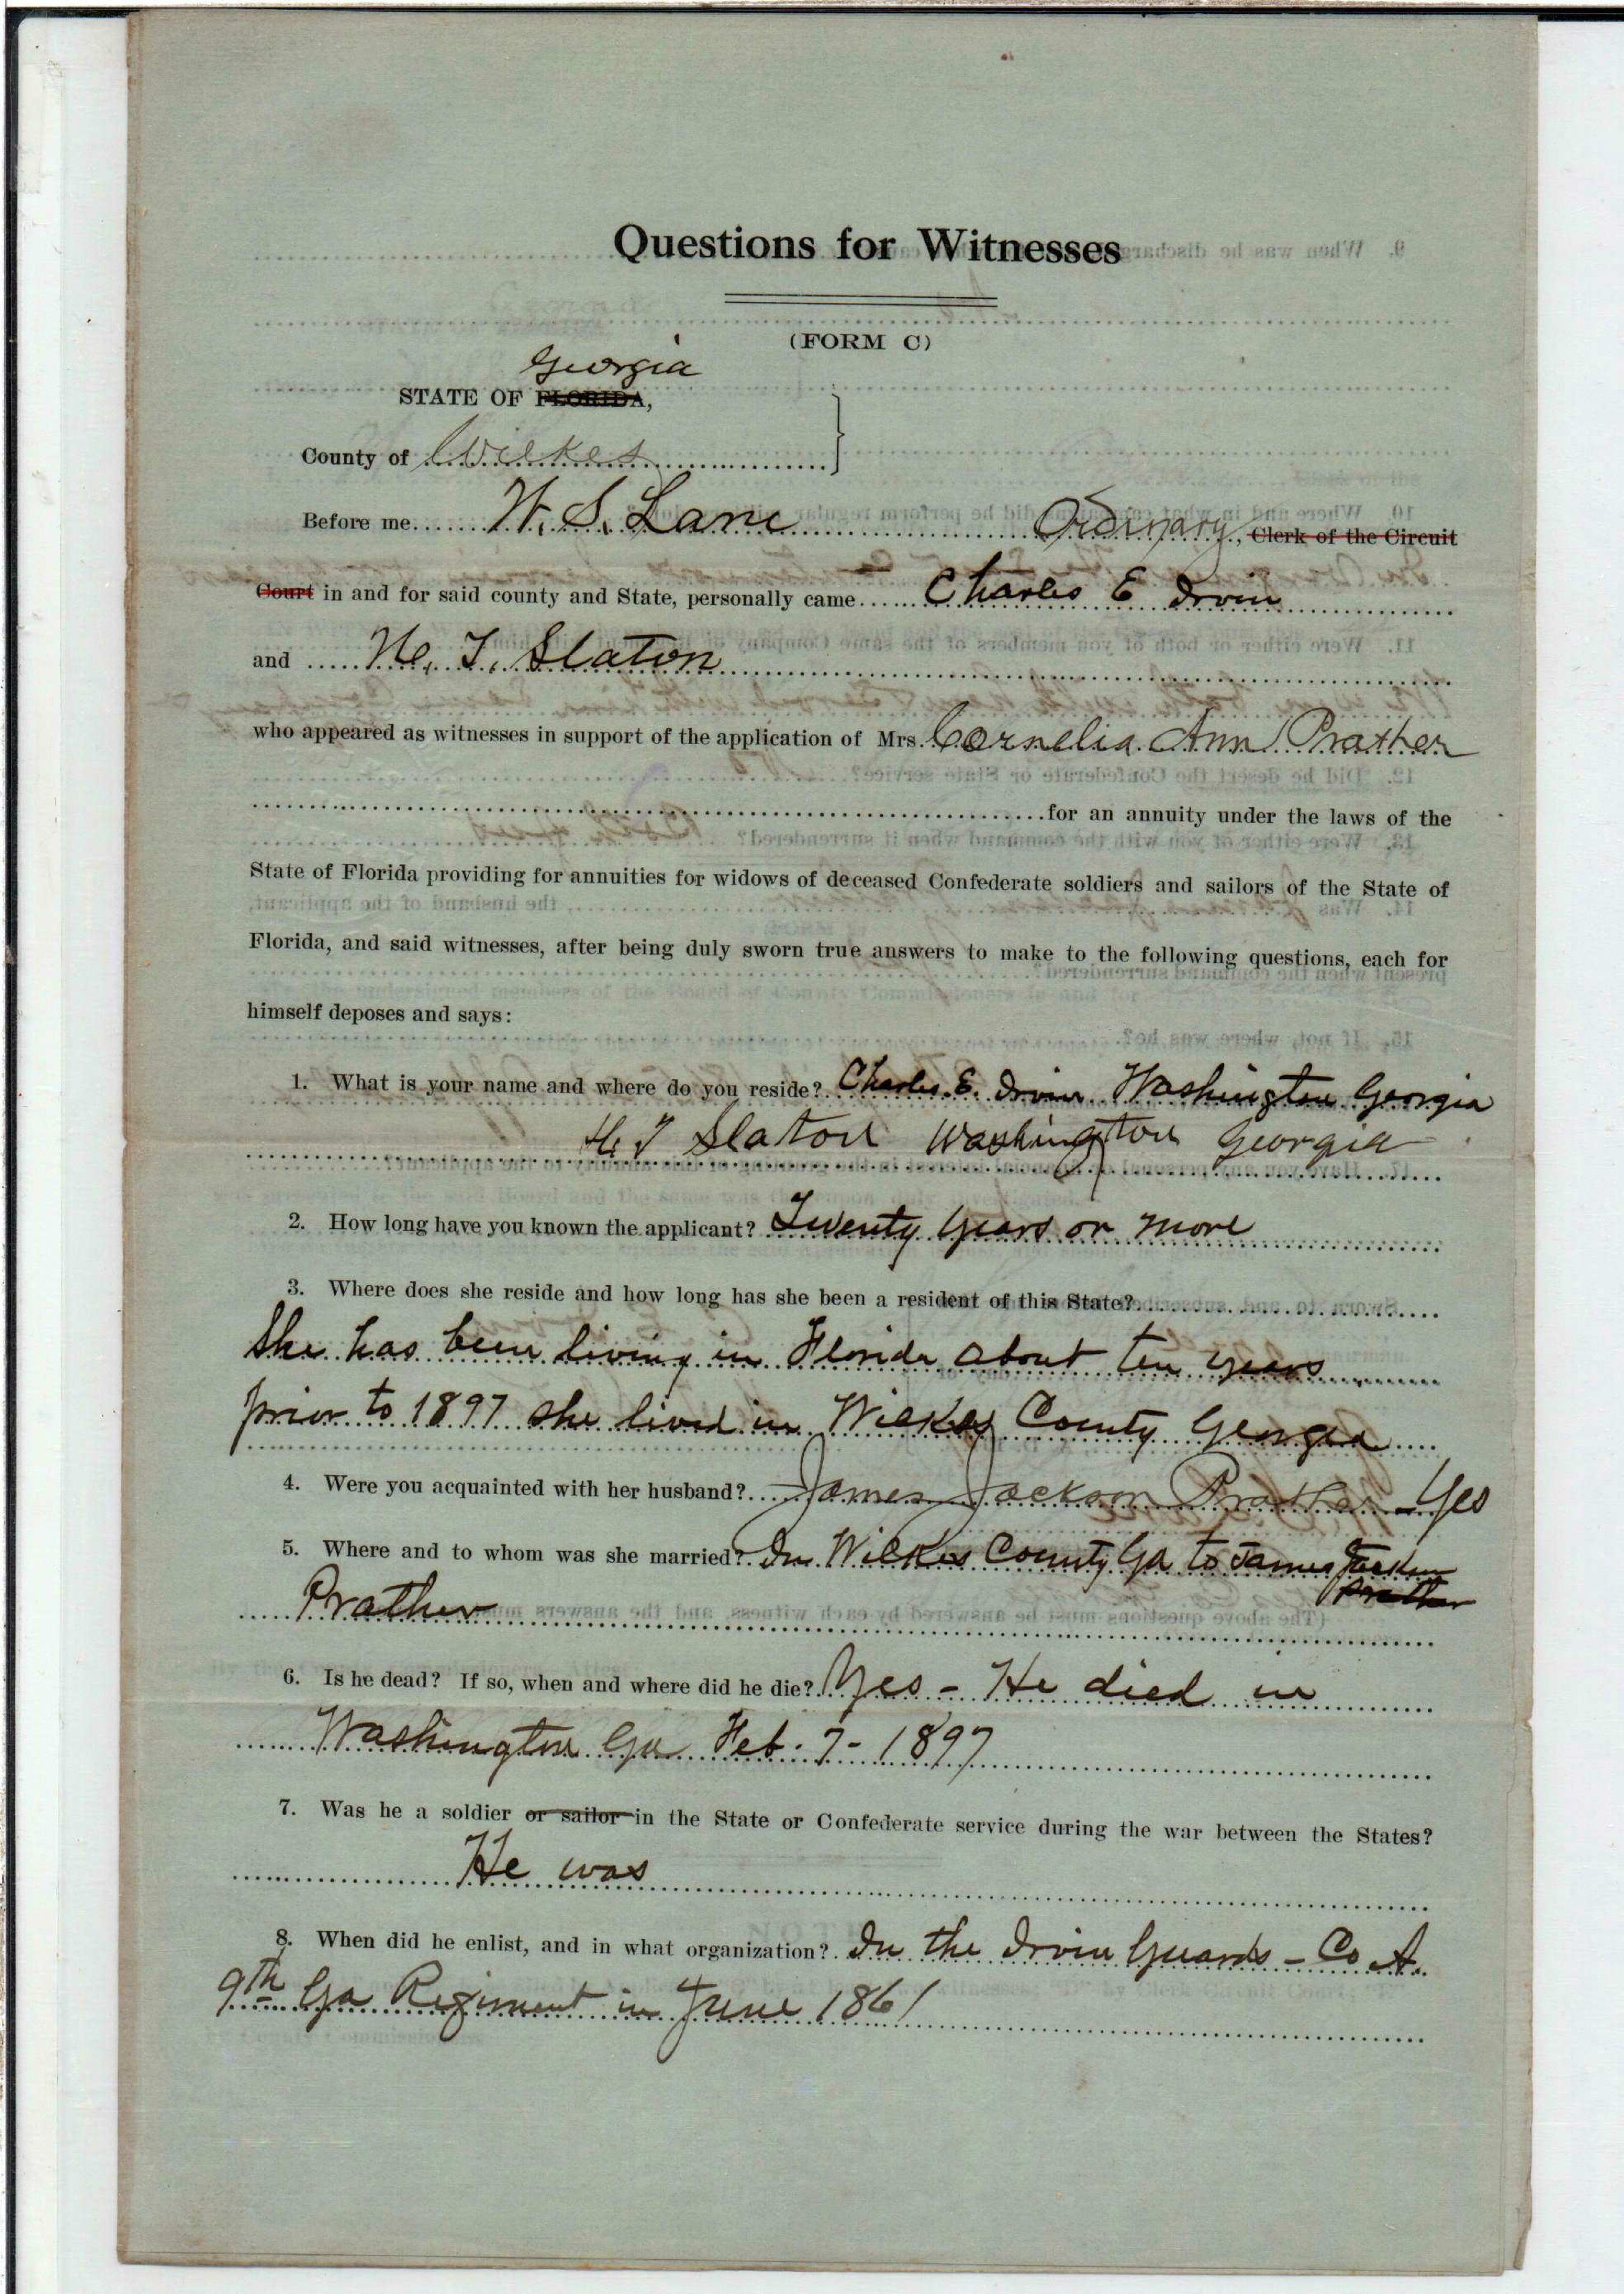 Questions for Witnesses
(FORM C)
Georgia
STATE OF FLORIDA,
County of Wilkes
Before me W. S. Lane Ordinary, Clerk of the Circuit
Court in and for said county and State, personally came Charles E Irvin
and H. T. Slaton
who appeared as witnesses in support of the application of Mrs. Cornelia Ann Prather
for an annuity under the laws of the
State of Florida providing for annuities for widows of deceased Confederate soldiers and sailors of the State of
Florida, and said witnesses, after being duly sworn true answers to make to the following questions, each for
himself deposes and says:
1. What is your name and where do you reside? Charles. E. Irvin Washington Georgia
H T Slaton Washington Georgia
2. How long have you known the applicant? Twenty years or more
3. Where does she reside and how long has she been a resident of this State?
She has been living in Florida about ten years
prior to 1897 she lived in Wilkes County Georgia
4. Were you acquainted with her husband? James Jackson Prather - Yes
5. Where and to whom was she married? In Wilkes County Ga to James Jackson
Prather
Prather
6. Is he dead? If so, when and where did he die? Yes - He died in
Washington Ga Feb. 7 - 1897
7. Was he a soldier or sailor in the State or Confederate service during the war between the States?
He was
8. When did he enlist, and in what organization? In the Irvin Guards - Co A.
9th Ga Regiment in June 1861